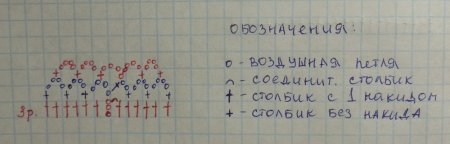 ОБОЗНАЧЕНИЯ:
о - ВОЗДУШНАЯ ПЕТЛЯ
- СОЕДИНИТ. СТОЛБИК
- СТОЛБИК С 1 НАКИДОМ
+ - СТОЛБИК БЕЗ НАКИДА
3р.